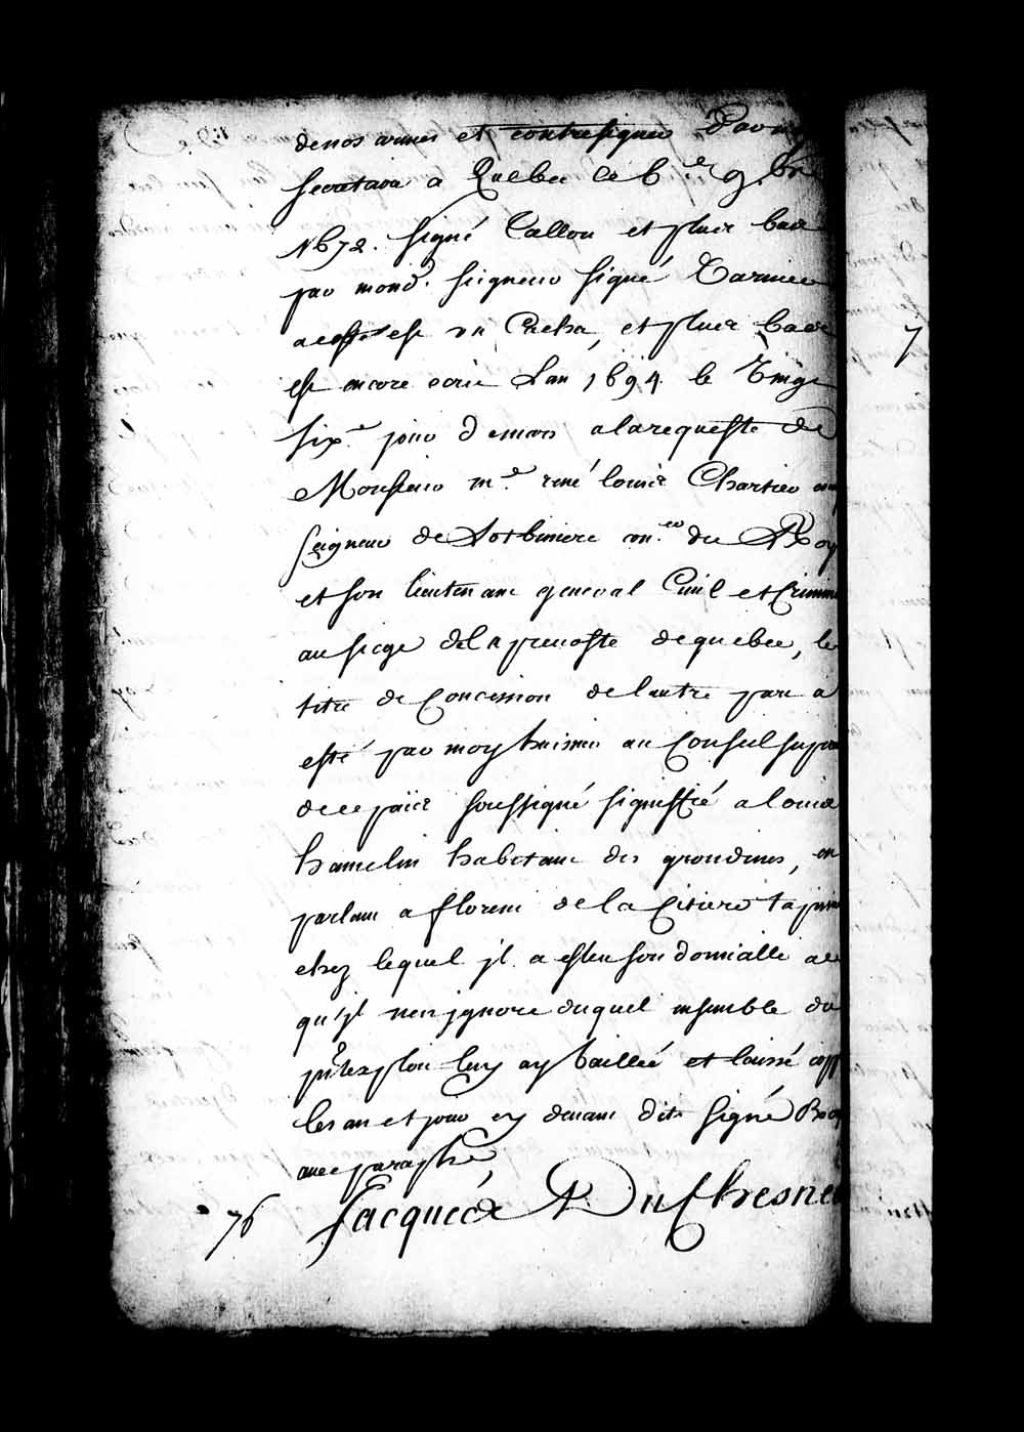 denos armes et contresignée
secretaire a Quebec le 6.e 9.bre
1672. Signé Tallon et plus bas
par mond. seigneur signé Varnier
a costé est un Cachet, et plus bas
est encore ecrit Lan 1694. le Vingt
six.e jour de mars alarequeste de
Monsieur m.e rené louis Chartier
seigneur de Lotbiniere con.er du Roy
et son lieutenant general Civil et Crimin
au siege dela prevosté dequebec, le
titre de Concession de lautre part a
esté par moy huissier au Conseil
dece païs soussigné signiffié a louis
hamelin habitant des grondines, en
parlant a florent de la Citiere
chez lequel jl a esleu son domicille
qu'jl nen jgnore duquel ensemble du
pnt exploit luy ay baillé et laissé cop
les an et jour cy devant dits Signé
avec paraphe,
76 Jacques A Dufresne
7